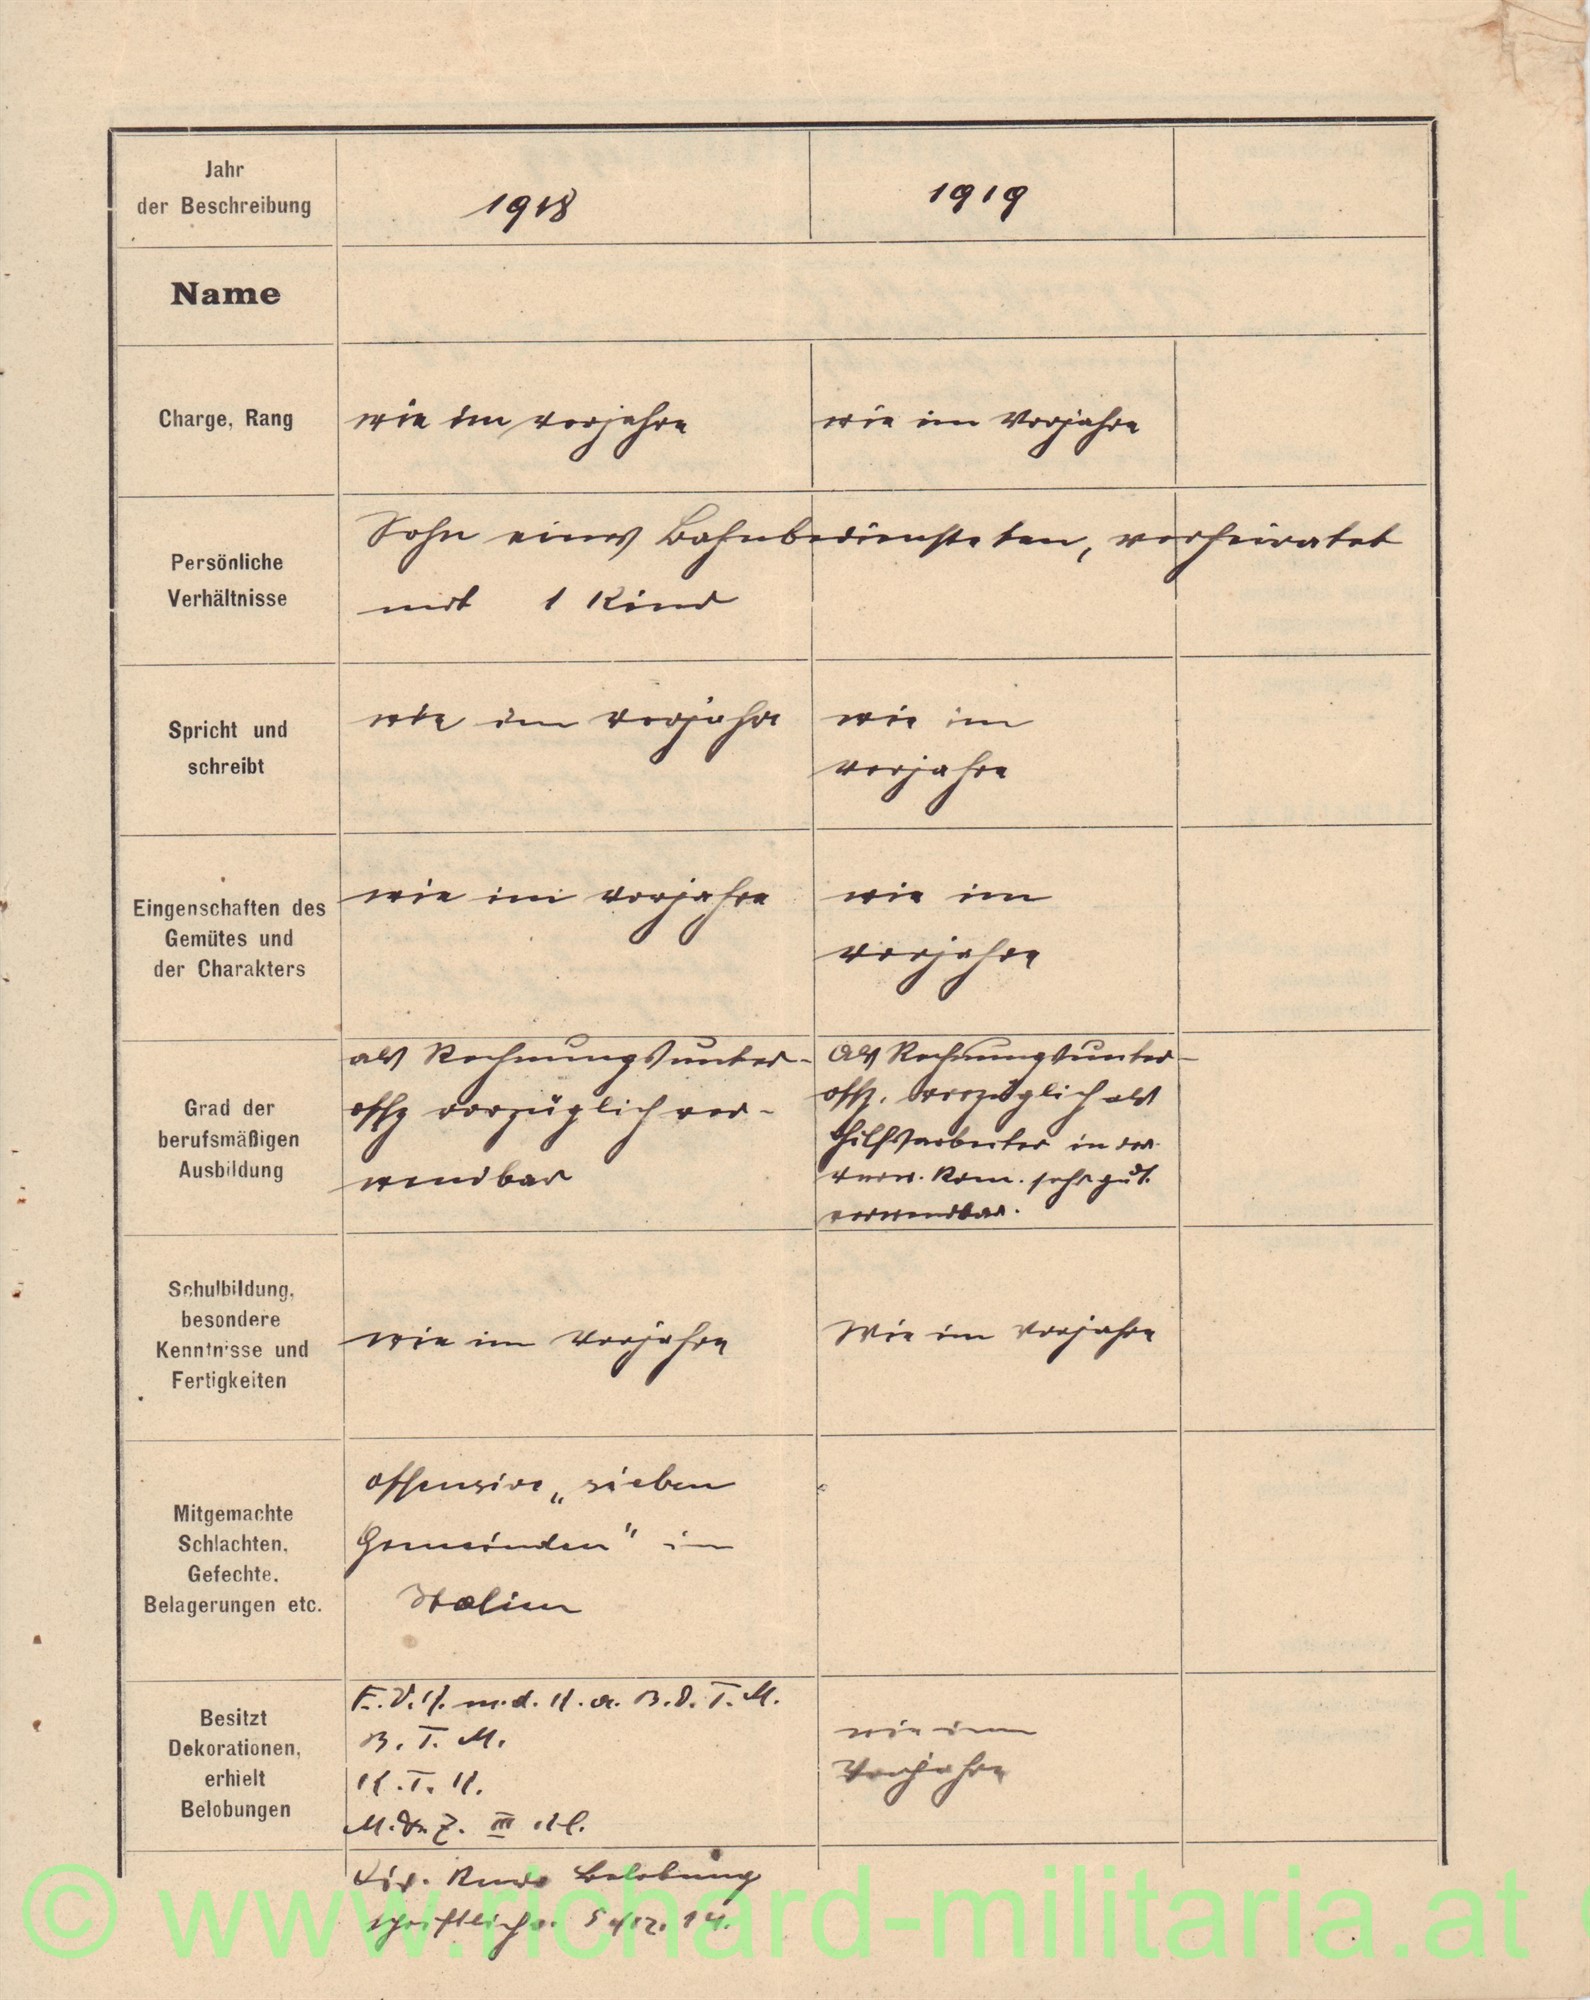 Jahr
der Beschreibung
1918
1919
Name
Charge, Rang
wie im vorjahre
wie im Vorjahre
Persönliche
Verhältnisse
Sohn eines Bahnbediensteten, verheiratet
mit 1 Kind
Spricht und
schreibt
wie im vorjahre
wie im
vorjahre
Eingenschaften des
Gemütes und
der Charakters
wie im vorjahre
wie im
vorjahre
Grad der
berufsmäßigen
Ausbildung
als Rechnungsunter-
offz vorzüglich ver-
wendbar
Als Rechnungsunter-
offz. vorzüglich als
Hilfsarbeiter in der
Kom. sehr gut.
verwendbar.
Schulbildung,
besondere
Kenntnisse und
Fertigkeiten
wie im Vorjahre
Wie im Vorjahre
Mitgemachte
Schlachten,
Gefechte,
Belagerungen etc.
offensive „sieben
Gemeinden" in
Italien
Besitzt
Dekorationen,
erhielt
Belobungen
E.V.K. m.d.K.a.B.d.T.M.
B.T.M.
K.T.K.
M.V.Z. III Kl.
wie im
Vorjahre
Div. Kmdo Belobung
schriftliche. 5./12.14.
© www.richard-militaria.at